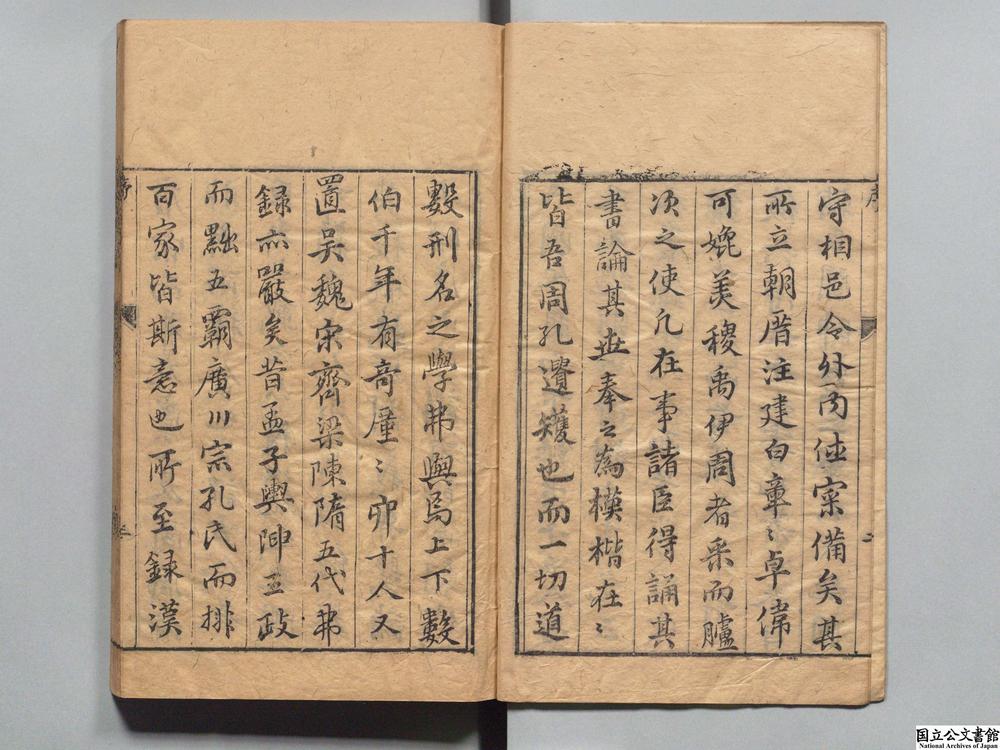 序
守相邑令外內仕寀備矣其
所立朝厝注建白章〻卓偉
可媲美稷禹伊周者采而臚
次之使凡在事諸臣得誦其
書論其世奉之為模楷在〻
皆吾周孔遺矱也而一切道
數刑名之學弗與焉上下數
伯千年有奇厪〻卯十人又
置吳魏宋齊梁陳隋五代弗
錄亦嚴矣昔孟子輿陋五政
而黜五霸廣川宗孔氏而排
百家皆斯意也所至錄漢
序
三
国立公文書館
National Archives of Japan